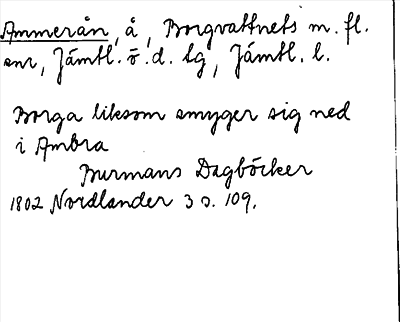 Ammerån, å, Borgvattnets m. fl.
snr, Jämtl. ö. d. lg, Jämtl. l.
Borga liksom smyger sig ned
i Ambra
Burmans Dagböcker
1802 Nordlander 3 s. 109.